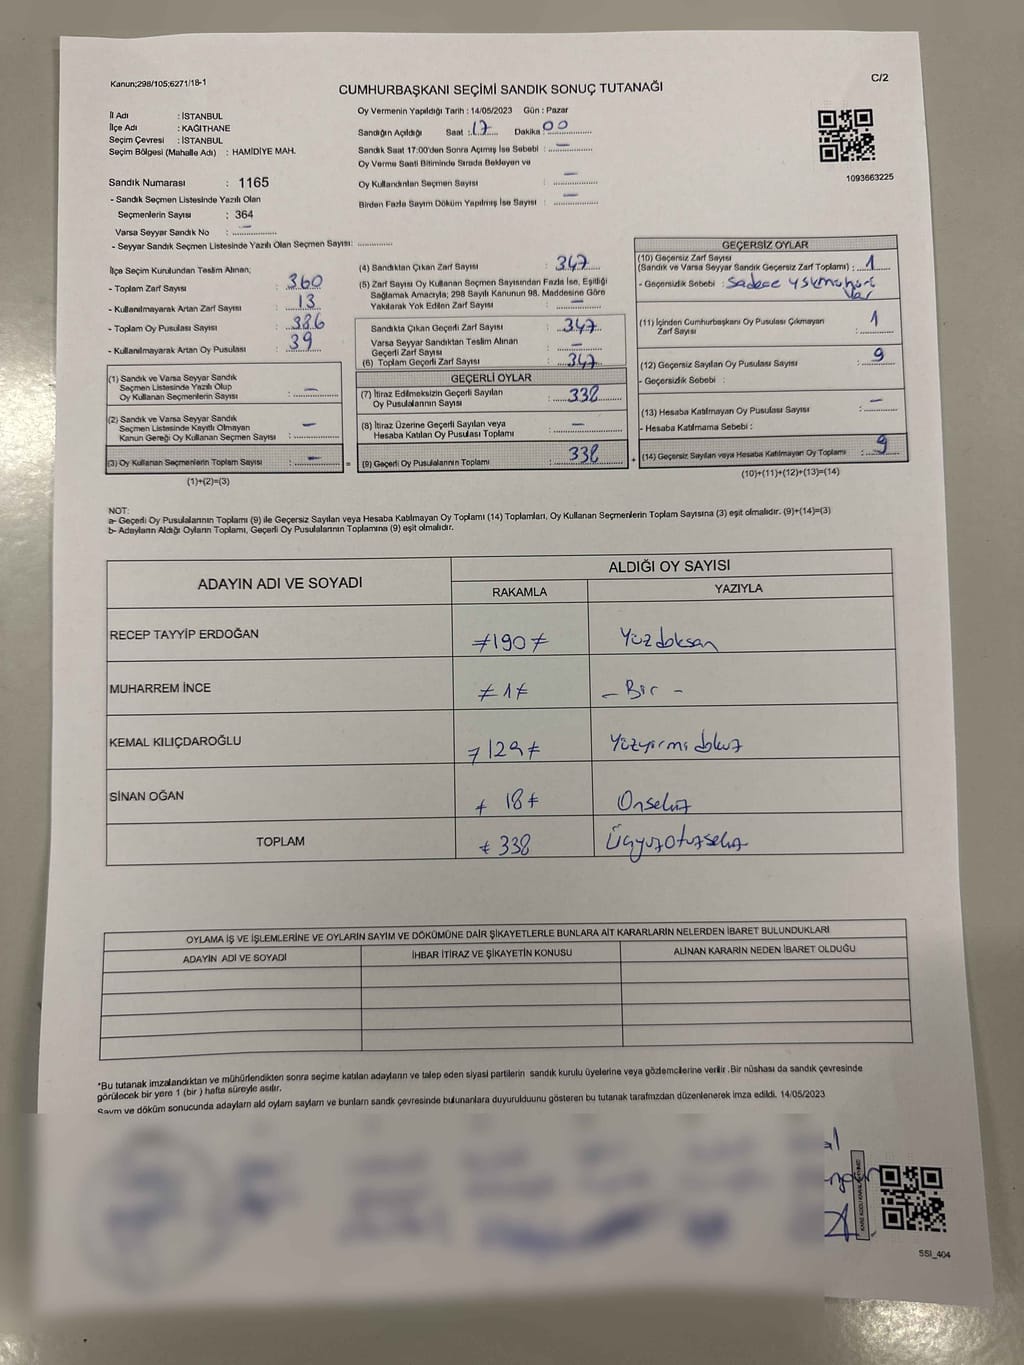 Kanun;298/105;6271/18-1
C/2
CUMHURBAŞKANI SEÇİMİ SANDIK SONUÇ TUTANAĞI
İl Adı : İSTANBUL
İlçe Adı : KAĞITHANE
Seçim Çevresi : İSTANBUL
Seçim Bölgesi (Mahalle Adı) : HAMİDİYE MAH.
Sandık Numarası : 1165
- Sandık Seçmen Listesinde Yazılı Olan
Seçmenlerin Sayısı : 364
Varsa Seyyar Sandık No : –
- Seyyar Sandık Seçmen Listesinde Yazılı Olan Seçmen Sayısı:
Oy Vermenin Yapıldığı Tarih : 14/05/2023 Gün : Pazar
Sandığın Açıldığı Saat : 17 Dakika : 00
Sandık Saat 17:00'den Sonra Açımış İse Sebebi : –
Oy Verme Saati Bitiminde Sırada Bekleyen ve
Oy Kullandırılan Seçmen Sayısı : –
Birden Fazla Sayım Döküm Yapılmış İse Sayısı : –
1093663225
İlçe Seçim Kurulundan Teslim Alınan;
- Toplam Zarf Sayısı : 360
- Kullanılmayarak Artan Zarf Sayısı : 13
- Toplam Oy Pusulası Sayısı : 386
- Kullanılmayarak Artan Oy Pusulası : 39
(1) Sandık ve Varsa Seyyar Sandık
Seçmen Listesinde Yazılı Olup
Oy Kullanan Seçmenlerin Sayısı : –
(2) Sandık ve Varsa Seyyar Sandık
Seçmen Listesinde Kayıtlı Olmayan
Kanun Gereği Oy Kullanan Seçmen Sayısı : –
(3) Oy Kullanan Seçmenlerin Toplam Sayısı : –
(1)+(2)=(3)
(4) Sandıktan Çıkan Zarf Sayısı : 347
(5) Zarf Sayısı Oy Kullanan Seçmen Sayısından Fazla İse, Eşitliği
Sağlamak Amacıyla; 298 Sayılı Kanunun 98. Maddesine Göre
Yakılarak Yok Edilen Zarf Sayısı : –
Sandıkta Çıkan Geçerli Zarf Sayısı : 347
Varsa Seyyar Sandıktan Teslim Alınan
Geçerli Zarf Sayısı : –
(6) Toplam Geçerli Zarf Sayısı : 347
GEÇERLİ OYLAR
(7) İtiraz Edilmeksizin Geçerli Sayılan
Oy Pusulalarının Sayısı : 338
(8) İtiraz Üzerine Geçerli Sayılan veya
Hesaba Katılan Oy Pusulası Toplamı : –
= (9) Geçerli Oy Pusulalarının Toplamı : 338 +
GEÇERSİZ OYLAR
(10) Geçersiz Zarf Sayısı
(Sandık ve Varsa Seyyar Sandık Geçersiz Zarf Toplamı) : 1
- Geçersizlik Sebebi : Sadece
var
(11) İçinden Cumhurbaşkanı Oy Pusulası Çıkmayan
Zarf Sayısı : 1
(12) Geçersiz Sayılan Oy Pusulası Sayısı : 9
- Geçersizlik Sebebi :
(13) Hesaba Katılmayan Oy Pusulası Sayısı : –
- Hesaba Katılmama Sebebi :
(14) Geçersiz Sayılan veya Hesaba Katılmayan Oy Toplamı : 9
(10)+(11)+(12)+(13)=(14)
NOT:
a- Geçerli Oy Pusulalarının Toplamı (9) ile Geçersiz Sayılan veya Hesaba Katılmayan Oy Toplamı (14) Toplamları, Oy Kullanan Seçmenlerin Toplam Sayısına (3) eşit olmalıdır. (9)+(14)=(3)
b- Adayların Aldığı Oyların Toplamı, Geçerli Oy Pusulalarının Toplamına (9) eşit olmalıdır.
ADAYIN ADI VE SOYADI
ALDIĞI OY SAYISI
RAKAMLA YAZIYLA
RECEP TAYYİP ERDOĞAN ≠190≠ Yüzdoksan
MUHARREM İNCE ≠1≠ – Bir –
KEMAL KILIÇDAROĞLU ≠129≠ Yüzyirmi dokuz
SİNAN OĞAN ≠18≠ Onsekiz
TOPLAM ≠338 Üçyüzotuzsekiz
OYLAMA İŞ VE İŞLEMLERİNE VE OYLARIN SAYIM VE DÖKÜMÜNE DAİR ŞİKAYETLERLE BUNLARA AİT KARARLARIN NELERDEN İBARET BULUNDUKLARI
ADAYIN ADI VE SOYADI İHBAR İTİRAZ VE ŞİKAYETİN KONUSU ALINAN KARARIN NEDEN İBARET OLDUĞU
*Bu tutanak imzalandıktan ve mühürlendikten sonra seçime katılan adayların ve talep eden siyasi partilerin sandık kurulu üyelerine veya gözlemcilerine verilir .Bir nüshası da sandık çevresinde
görülecek bir yere 1 (bir ) hafta süreyle asılır.
Sayım ve döküm sonucunda adayların aldı oyların sayları ve bunların sandık çevresinde bulunanlara duyurulduunu gösteren bu tutanak tarafımızdan düzenlenerek imza edildi. 14/05/2023
SSI_404